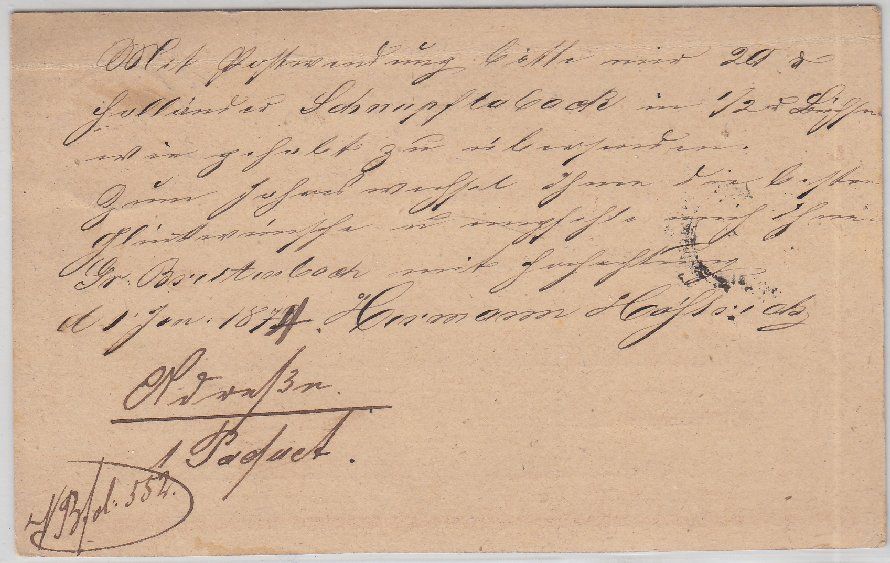 Mit Postwendung bitte mir 20 ℔
Holländer Schnupftaback in 1/2 ℔ Büchsen
wie gehabt zu übersenden.
Zum Jahreswechsel ihnen die besten
Glückwünsche u empfehle mich Ihnen
Gr. Breitenbach mit Hochachtung
d 1. Jan. 1874. Hermann
Adreße.
1 Pacquet.
552.